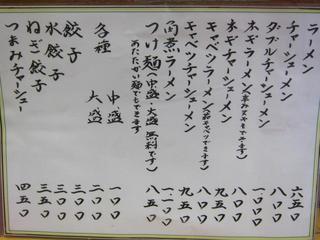 ラーメン 六五〇
チャーシューメン 八〇〇
ダブルチャーシューメン 一、〇〇〇
ネギラーメン 八〇〇
ネギチャーシューメン 九五〇
キャベツラーメン 八〇〇
キャベツチャーシューメン 九五〇
角煮ラーメン 一、一〇〇
つけ麺（中盛・大盛 無料です） 八五〇
あたたかい麺でもできます
各種 中盛 一〇〇
大盛 二〇〇
餃子 三〇〇
水餃子 三〇〇
ねぎ餃子 三五〇
つまみチャーシュー 四五〇